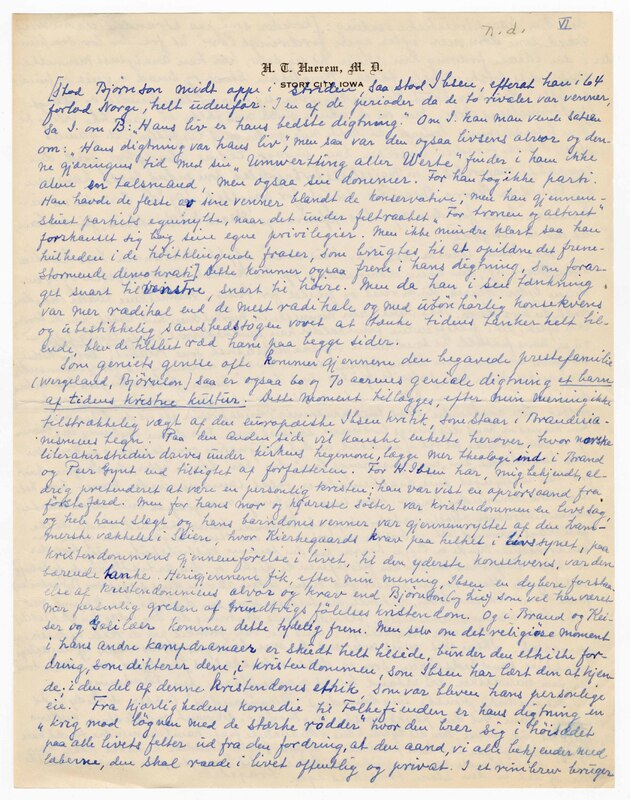 n.d.
VI
H. T. Haerem, M. D.
STORY CITY, IOWA
[Stod Björnson midt oppe i Striden, saa stod Ibsen, efterat han i 64
forlod Norge, helt udenfor. I en af de perioder da de to rivaler var venner,
sa I. om B: "Hans liv er hans bedste digtning." Om I. kan man vende satsen
om: "Hans digtning var hans liv", men saa var den ogsaa livsens alvor og den-
ne gjæringens tid med sin "Umwertung aller Werte" finder i ham ikke
alene en talsmand, men ogsaa sin dommer. For han tog ikke parti.
Han havde de fleste av sine venner blandt de konservative; men han gjennem-
skuet partiets egennytte, naar det under feltraabet "For tronen og alteret"
forskanset sig bag sine egne privilegier. Men ikke mindre klart saa han
hulheden i de höitklingende fraser, som brugtes til at opildne det frem-
stormende demokrati] Dette kommer ogsaa frem i hans digtning, som forar-
get snart til venstre, snart til höire. Men da han i sin tænkning
var mer radikal end de mest radikale og med ubönhörlig konsekvens
og ubestikkelig sandheds vovet at tænke tidens tanker helt til-
ende, blev de tilslut ræd ham paa begge sider.
Som geniets genese ofte kommer gjennem den begavede prestefamilie
(Wergeland, Björnson) saa er ogsaa 60 og 70 aarenes geniale digtning et barn
af tidens kristne kultur. Dette moment tillægges, efter min mening ikke
tilstrækkelig vægt af den europæiske Ibsen kritik, som staar i Brandesia-
nismens tegn. Paa den anden side vil kanske enkelte herover, hvor norske
literaturstudier drives under kirkens hegemoni, lægge mer theologi ind i Brand
og Peer Gynt end tilsigtet af forfatteren. For H Ibsen har, mig bekjendt, al-
drig pretenderet at være en personlig kristen; han var vist en oprörsaand fra
förstefærd. Men for hans mor og kjæreste söster var kristendommen en livssag,
og hele hans slægt og hans barndoms venner var gjennemrystet af den Lam-
merske vækkelse i Skien, hvor Kierkegaards krav paa helhet i livssynet, paa
kristendommens gjennemförelse i livet, til den yderste konsekvens, var den
bærende tanke. Herigjennem fik, efter min mening, Ibsen en dybere forstaa-
else af kristendommens alvor og krav end Björnson (og Lie) som vel har været
mer personlig greben af Grundtvigs fölelses kristendom. Og i Brand og Kei-
ser og Galilæer kommer dette tydelig frem. Men selv om det religiöse moment
i hans andre kampdramaer er skudt helt tilside, bunder den ethiske for-
dring, som dikterer dem, i kristendommen, som Ibsen har lært den at kjen-
de; i den del af denne kristendoms ethik, som var bleven hans personlige
eie. Fra Kjærlighedens komedie til Folkefienden er hans digtning en
"krig mod lögnen med de stærke rödder" hvor den brer sig i höisædet
paa alle livets felter ud fra den fordring, at den aand, vi alle bekjender med
læberne, den skal raade i livet offentlig og privat. I et rimbrev bruger